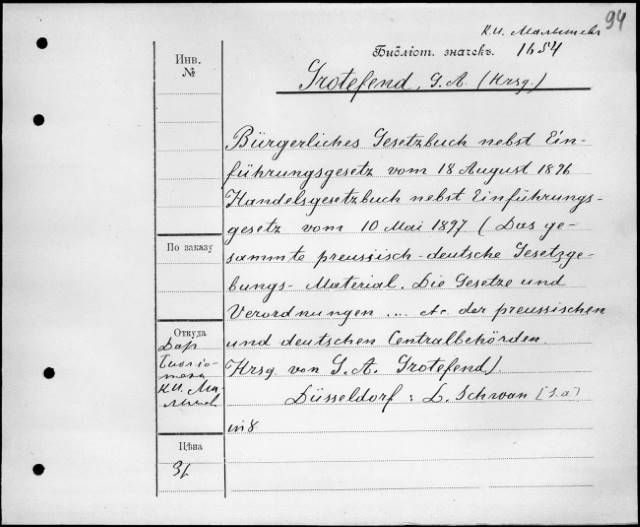 94
К.И. Малышевъ
Библіот. значекъ. 1654
Инв.
№
Grotefend, G.A. (Hrsg.)
Bürgerliches Gesetzbuch nebst Ein-
führungsgesetz vom 18 August 1896
Handelsgesetzbuch nebst Einführungs-
gesetz vom 10 Mai 1897 (Das ge-
sammte preussisch-deutsche Gesetzge-
bungs-Material. Die Gesetze und
Verordnungen .... etc. der preussischen
und deutschen Centralbehörden.
Hrsg. von G.A. Grotefend).
Düsseldorf: L. Schwan [s.a]
in 8
По заказу
Откуда
Дар
Библіо-
тека
К.И. Ма-
лышев
Цѣна